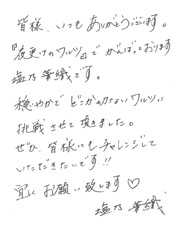 皆様、いつもありがとうございます。
『夜更けのワルツ』でがんばっております
塩乃華織です。
穏いやかでどこか切ないワルツに
挑戦させて頂きました。
ぜひ、皆様にもチャレンジして
いただきたいです!!
宜しくお願い致します♡
塩乃華織